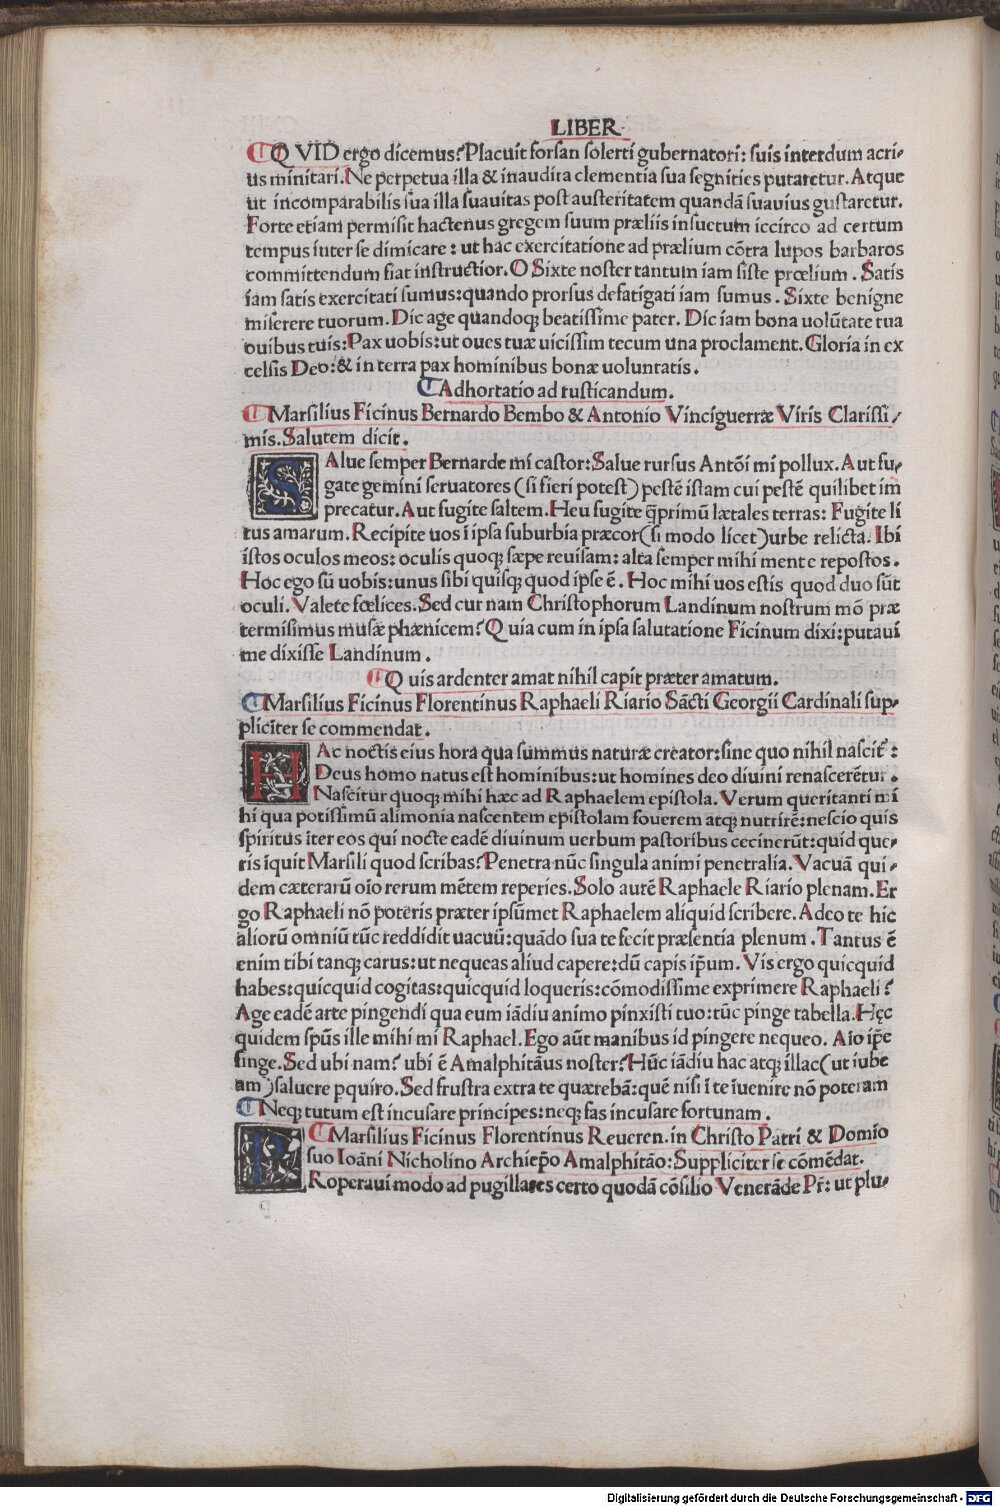 LIBER
QVID ergo dicemus? Placuit forsan solerti gubernatori: suis interdum acri-
us minitari. Ne perpetua illa & inaudita clementia sua segnities putaretur. Atque
ut incomparabilis sua illa suauitas post austeritatem quandā suauius gustaretur.
Forte etiam permisit hactenus gregem suum præliis insuetum iccirco ad certum
tempus inter se dimicare: ut hac exercitatione ad prælium cōtra lupos barbaros
committendum fiat instructior. O Sixte noster tantum iam siste prœlium. Satis
iam satis exercitati sumus: quando prorsus defatigati iam sumus. Sixte benigne
miserere tuorum. Dic age quandoqꝫ beatissime pater. Dic iam bona uolūtate tua
ouibus tuis: Pax uobis: ut oues tuæ uicissim tecum una proclament. Gloria in ex
celsis Deo: & in terra pax hominibus bonæ uoluntatis.
Adhortatio ad rusticandum.
Marsilius Ficinus Bernardo Bembo & Antonio Vinciguerræ Viris Clarissi-
mis. Salutem dicit.
SAlue semper Bernarde mi castor: Salue rursus Antōi mi pollux. Aut fu-
gate gemini seruatores (si fieri potest) pestē istam cui pestē quilibet im
precatur. Aut fugite saltem. Heu fugite q̄primū lætales terras: Fugite li
tus amarum. Recipite uos ī ipsa suburbia præcor (si modo licet) urbe relicta. Ibi
istos oculos meos: oculis quoqꝫ sæpe reuisam: alta semper mihi mente repostos.
Hoc ego sū uobis: unus sibi quisqꝫ quod ipse ē. Hoc mihi uos estis quod duo sūt
oculi. Valete fœlices. Sed cur nam Christophorum Landinum nostrum mō præ
termisimus musæ phœnicem? Quia cum in ipsa salutatione Ficinum dixi: putaui
me dixisse Landinum.
Quis ardenter amat nihil capit præter amatum.
Marsilius Ficinus Florentinus Raphaeli Riario Sācti Georgii Cardinali sup-
pliciter se commendat.
HAc noctis eius hora qua summus naturæ creator: sine quo nihil nascit᷑:
Deus homo natus est hominibus: ut homines deo diuini renascerētur.
Nascitur quoqꝫ mihi hæc ad Raphaelem epistola. Verum queritanti mi
hi qua potissimū alimonia nascentem epistolam fouerem atqꝫ nutrirē: nescio quis
spiritus īter eos qui nocte eadē diuinum uerbum pastoribus cecinerūt: quid que-
ris īquit Marsili quod scribas? Penetra nūc singula animi penetralia. Vacuā qui-
dem cæterarū oīo rerum mētem reperies. Solo autē Raphaele Riario plenam. Er
go Raphaeli nō poteris præter ipsūmet Raphaelem aliquid scribere. Adeo te hic
aliorū omniū tūc reddidit uacuū: quādo sua te fecit præsentia plenum. Tantus ē
enim tibi tanqꝫ carus: ut nequeas aliud capere: dū capis ip̄um. Vis ergo quicquid
habes: quicquid cogitas: quicquid loqueris: cōmodissime exprimere Raphaeli?
Age eadē arte pingendi qua eum iādiu animo pinxisti tuo: tūc pinge tabella. Hęc
quidem sp̄us ille mihi mi Raphael. Ego aūt manibus id pingere nequeo. Aio ip̄e
finge. Sed ubi nam? ubi ē Amalphitāus noster? Hūc iādiu hac atqꝫ illac (ut iube
am) saluere pquiro. Sed frustra extra te quærebā: quē nisi ī te īuenire nō poteram
Neqꝫ tutum est incusare principes: neqꝫ fas incusare fortunam.
Marsilius Ficinus Florentinus Reueren. in Christo Patri & Domīo
suo Ioāni Nicholino Archiep̄o Amalphitāo: Suppliciter se cōmēdat.
PRoperaui modo ad pugillares certo quodā cōsilio Venerāde Pr̄: ut plu-
Digitalisierung gefördert durch die Deutsche Forschungsgemeinschaft - DFG